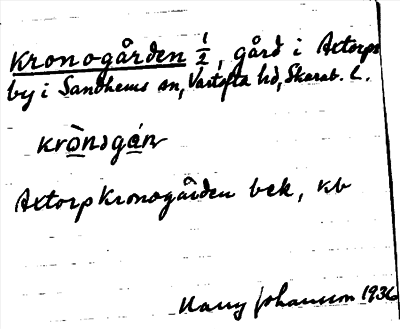 Kronogården 1/2, gård i Axtorps
by i Sandhems sn, Vartofta hd, Skarab. L.
kronogån
Axtorp Kronogården bek, kb
Harry Johansson 1936